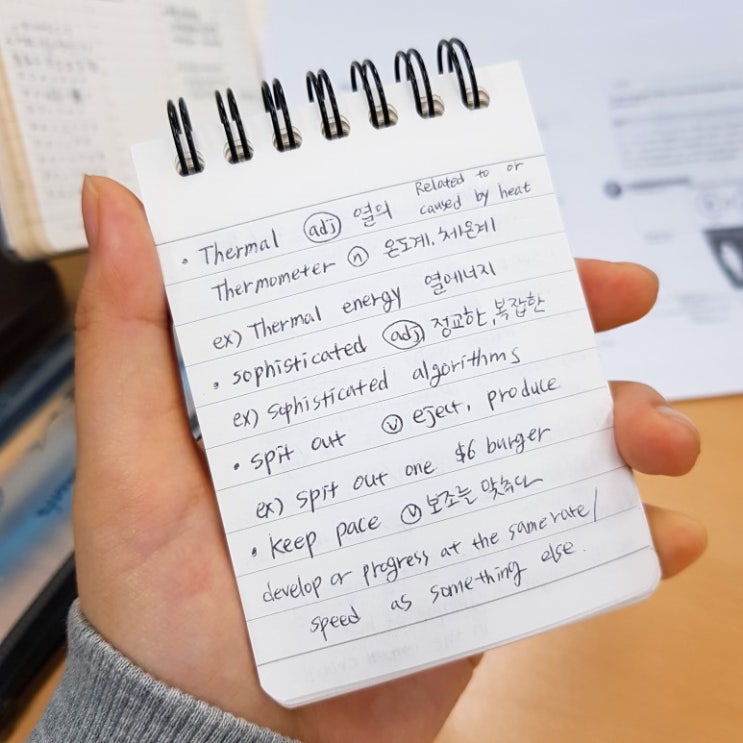 Related to or
• Thermal (adj) 열의 caused by heat
Thermometer (n) 온도계, 체온계
ex) Thermal energy 열에너지
• sophisticated (adj) 정교한, 복잡한
ex) sophisticated algorithms
• spit out (v) eject, produce
ex) spit out one $6 burger
• keep pace (v) 보조를 맞추다
develop or progress at the same rate/
speed as something else.